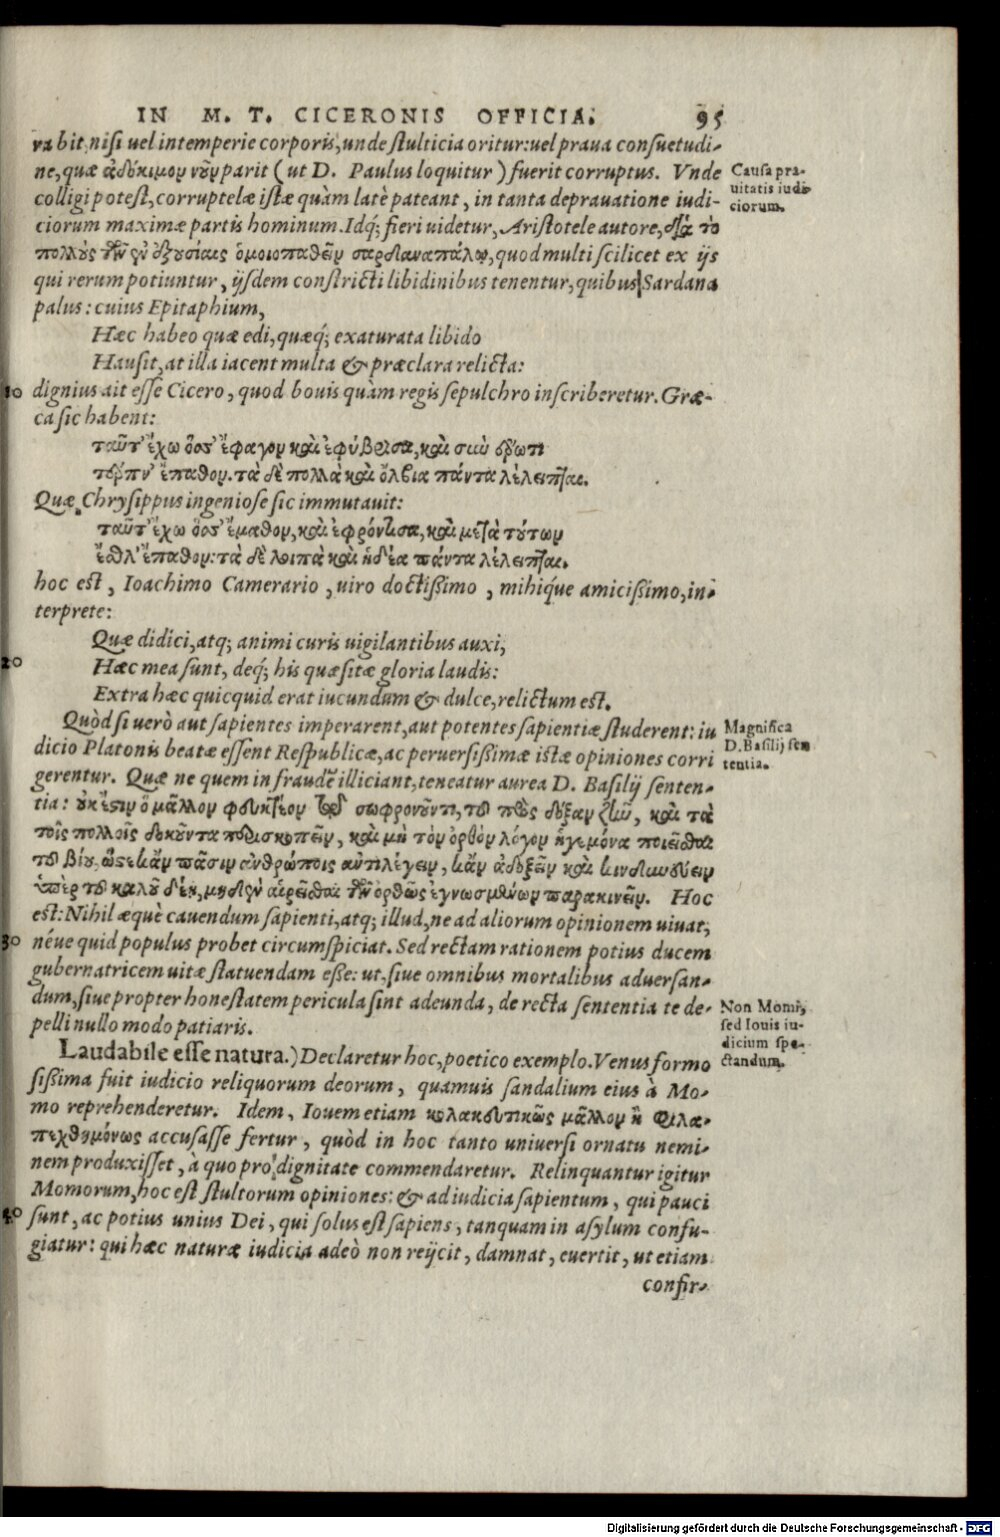 IN M. T. CICERONIS OFFICIA. 95
rabit, nisi uel intemperie corporis, unde stulticia oritur: uel praua consuetudi-
ne, quæ ἀδόκιμον νοῦν parit (ut D. Paulus loquitur) fuerit corruptus. Vnde
colligi potest, corruptelæ istæ quàm latè pateant, in tanta deprauatione iudi-
ciorum maximæ partis hominum. Idq; fieri uidetur, Aristotele autore, διὰ τὸ
πολλοὺς τῶν ἐν ἐξουσίαις ὁμοιοπαθεῖν σαρδαναπάλῳ, quod multi scilicet ex ijs
qui rerum potiuntur, ijsdem constricti libidinibus tenentur, quibus Sardana
palus: cuius Epitaphium,
Hæc habeo quæ edi, quæq; exaturata libido
Hausit, at illa iacent multa & præclara relicta:
10 dignius ait esse Cicero, quod bouis quàm regis sepulchro inscriberetur. Græ-
ca sic habent:
ταῦτ' ἔχω ὅσσ' ἔφαγον καὶ ἐφύβρισα, καὶ σὺν ἔρωτι
τέρπν' ἔπαθον. τὰ δὲ πολλὰ καὶ ὄλβια πάντα λέλειπται.
Quæ Chrysippus ingeniose sic immutauit:
ταῦτ' ἔχω ὅσσ' ἔμαθον, καὶ ἐφρόντισα, καὶ μετὰ τούτων
ἔσθλ' ἔπαθον: τὰ δὲ λοιπὰ καὶ ἡδέα πάντα λέλειπται.
hoc est, Ioachimo Camerario, uiro doctissimo, mihíque amicissimo, in-
terprete:
Quæ didici, atq; animi curis uigilantibus auxi,
20 Hæc mea sunt, deq; his quæsitæ gloria laudis:
Extra hæc quicquid erat iucundum & dulce, relictum est.
Quòd si uerò aut sapientes imperarent, aut potentes sapientiæ studerent: iu
dicio Platonis beatæ essent Respublicæ, ac peruersissimæ istæ opiniones corri
gerentur. Quæ ne quem in fraudē illiciant, teneatur aurea D. Basilij senten-
tia: οὐκ ἔστιν ὃ μᾶλλον φευκτέον τῷ σωφρονοῦντι, τοῦ πρὸς δόξαν ζῆν, καὶ τὰ
τοῖς πολλοῖς δοκοῦντα περισκοπεῖν, καὶ μὴ τὸν ὀρθὸν λόγον ἡγεμόνα ποιεῖσθαι
τοῦ βίου, ὥστε κἂν πᾶσιν ἀνθρώποις ἀντιλέγειν, κἂν ἀδοξεῖν καὶ κινδυνεύειν
ὑπὲρ τοῦ καλοῦ δέῃ, μηδὲν αἱρεῖσθαι τῶν ὀρθῶς ἐγνωσμένων παρακινεῖν. Hoc
est: Nihil æquè cauendum sapienti, atq; illud, ne ad aliorum opinionem uiuat,
30 néue quid populus probet circumspiciat. Sed rectam rationem potius ducem
gubernatricem uitæ statuendam esse: ut, siue omnibus mortalibus aduersan-
dum, siue propter honestatem pericula sint adeunda, de recta sententia te de-
pelli nullo modo patiaris.
Laudabile esse natura.) Declaretur hoc, poetico exemplo. Venus formo
sissima fuit iudicio reliquorum deorum, quamuis sandalium eius à Mo-
mo reprehenderetur. Idem, Iouem etiam κολακευτικῶς μᾶλλον ἢ φιλα-
πεχθημόνως accusasse fertur, quòd in hoc tanto uniuersi ornatu nemi-
nem produxisset, à quo pro dignitate commendaretur. Relinquantur igitur
Momorum, hoc est stultorum opiniones: & ad iudicia sapientum, qui pauci
40 sunt, ac potius unius Dei, qui solus est sapiens, tanquam in asylum confu-
giatur: qui hæc naturæ iudicia adeò non reijcit, damnat, euertit, ut etiam
confir-
Causa pra-
uitatis iudi-
ciorum.
Magnifica
D. Basilij sen
tentia.
Non Momi,
sed Iouis iu-
dicium spe-
ctandum.
Digitalisierung gefördert durch die Deutsche Forschungsgemeinschaft - DFG